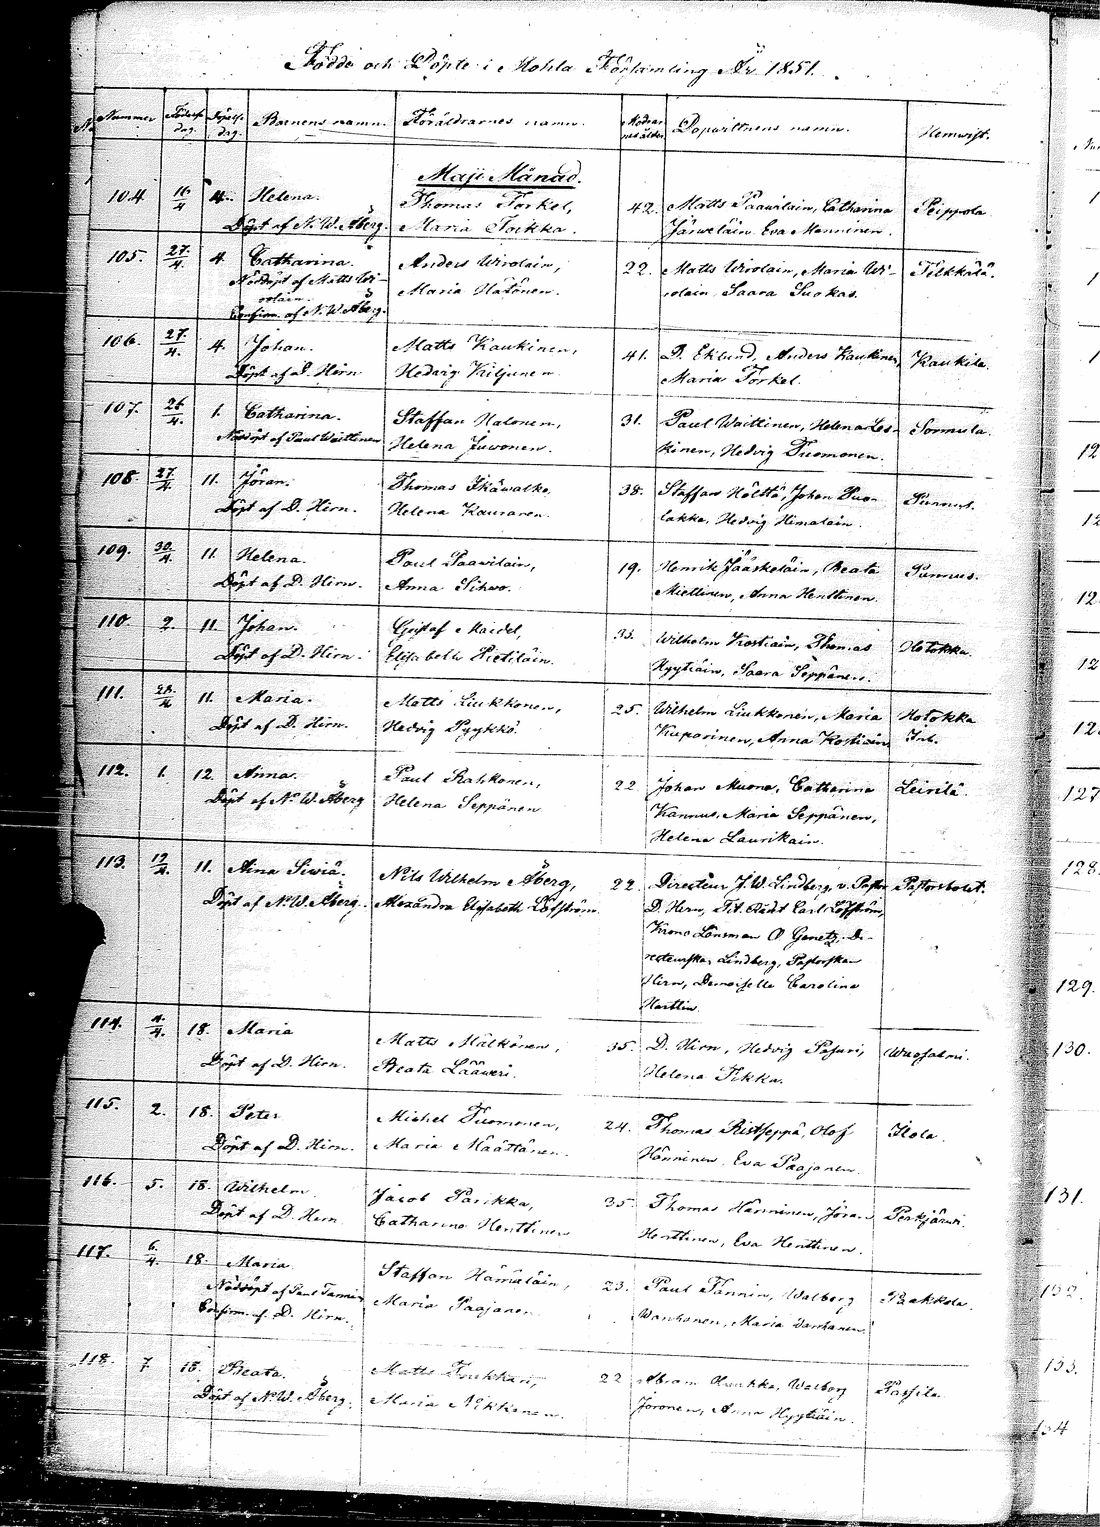 Födde och Döpte i Mohla Församling År 1851.
Nummer Födelse dag. Döpelse dag. Barnens namn. Föräldrarnes namn. Modrarnes ålder. Dopvittnens namn. Hemvist.
Maji Månad.
104 16/4 4. Helena. Thomas Torkel, 42. Matts Paawilain, Catharina Peippola
Döpt af N. W. Åberg. Maria Toikka. Järweläin Eva Manninen.
105. 27/4. 4. Catharina. Anders Wirolain, 22. Matts Wirolain, Maria Wi- Tilkkälä.
Nöddöpt af Matts Wi-
rolain. Maria Hatonen. rolain Saara Suokas.
Confirm. af N. W. Åberg.
106. 27/4. 4. Johan. Matts Kaukinen, 41. D. Eklund, Anders Kaukinen, Kaukila.
Döpt af D. Hirn Hedvig Kiljunen Maria Torkel.
107. 26/4. 1. Catharina. Staffan Halonen, 31. Paul Waittinen, Helena Les- Sormula.
Nöddöpt af Paul Waittinen Helena Juvonen. kinen, Hedvig Tuomonen.
108. 27/4. 11. Jöran. Thomas Ikäwalko, 38. Staffan Hölttä, Johan Puo- Punnus.
Döpt af D. Hirn. Helena Kauranen. lakka, Hedvig Himalain.
109. 30/4. 11. Helena. Paul Paawilain, 19. Henrik Jääskeläin, Beata Punnus.
Döpt af D. Hirn. Anna Sihwo. Miettinen, Anna Henttinen.
110. 2. 11. Johan. Gustaf Maidel, 35. Wilhelm Kostiain, Thomas Hotokka.
Döpt af D. Hirn. Elisabeth Pietiläin. Hyytiäin, Saara Seppänen.
111. 28/4 11. Maria. Matts Liukkonen, 25. Wilhelm Liukkonen, Maria Hotokka
Döpt af D. Hirn. Hedvig Pyykkö. Kuparinen, Anna Kostiain Inh.
112. 1. 12. Anna. Paul Rahkonen, 22 Johan Muona, Catharina Leirilä.
Döpt af N. W. Åberg Helena Seppänen Kannus, Maria Seppänen,
Helena Laurikain.
113. 19/4. 11. Aina Siwiä. Nils Wilhelm Åberg, 22. Directeur J. W. Lindberg, v. Pastor Pastorsbolet.
Döpt af N. W. Åberg. Alexandra Elisabeth Löfström. D. Hirn, Tit. Rådet Carl Löfström,
Krono Länsman O Ganetz, Di-
recteurskan Lindberg, Pastorskan
Hirn, Demoiselle Carolina
Harttin.
114. 4/4. 18. Maria Matts Mälkönen, 35. D. Hirn, Hedvig Pasuri, Wuosalmi.
Döpt af D. Hirn. Beata Lääweri. Helena Tikka.
115. 2. 18. Peter Michel Tuomonen, 24. Thomas Ristseppä, Olof Ilola.
Döpt af D. Hirn. Maria Määttänen. Hänninen Eva Paajanen.
116. 5. 18. Wilhelm. Jacob Parikka, 35. Thomas Hänninen, Jöran Perkjärwi.
Döpt af D. Hirn Catharina Henttinen Henttinen, Eva Henttinen.
117. 6/4. 18. Maria. Staffan Hämäläin, 23. Paul Tannin, Walborg Paakkola.
Nöddöpt af Paul Tannin Maria Paajanen Wanhanen, Maria Wanhanen.
Confirm. af D. Hirn.
118. 7. 18. Beata. Matts Toukkari, 22 Abram Luukka, Walborg Passila.
Döpt af N. W. Åberg. Maria Nikkanen. Joronen, Anna Hyytiäin.
127
128.
129.
130.
131.
132.
133.
134